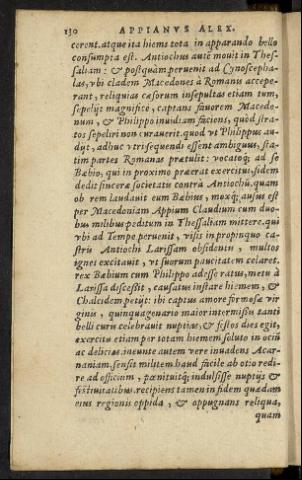 130 APPIANVS ALEX.
cerent. atque ita hiems tota in apparando bello
consumpta est. Antiochus autē mouit in Thes-
saliam: & postquàm peruenit ad Cynoscepha-
las, vbi cladem Macedones à Romanis accepe-
rant, reliquias cæsorum insepultas etiam tum,
sepelijt magnificè, captans fauorem Macedo-
num, & Philippo inuidiam faciens, quòd stra-
tos sepeliri non curauerit. quod vt Philippus au-
dijt, adhuc vtri sequendi essent ambiguus, sta-
tim partes Romanas prætulit: vocatoq; ad se
Bæbio, qui in proximo præerat exercitui, fidem
dedit sinceræ societatis contrà Antiochū. quam
ob rem laudauit eum Bæbius, moxq; ausus est
per Macedoniam Appium Claudium cum duo-
bus milibus peditum in Thessaliam mittere. qui
vbi ad Tempe peruenit, visis in propinquo ca-
stris Antiochi Larissam obsidentis, multos
ignes excitauit, vt suorum paucitatem celaret.
rex Bæbium cum Philippo adesse ratus, metu à
Larissa discessit, causatus instare hiemem, &
Chalcidem petijt: ibi captus amore formosæ vir
ginis, quinquagenario maior intermissa tanti
belli cura celebrauit nuptias, & festos dies egit,
exercitu etiam per totam hiemem soluto in ociū
ac delicias. ineunte autem vere inuadens Acar-
naniam, sensit militem haud facilè ab otio redi-
re ad officium, pœnituitq; indulsisse nuptijs &
festiuitatibus. recipiens tamen in fidem quædam
eius regionis oppida, & oppugnans reliqua,
quam